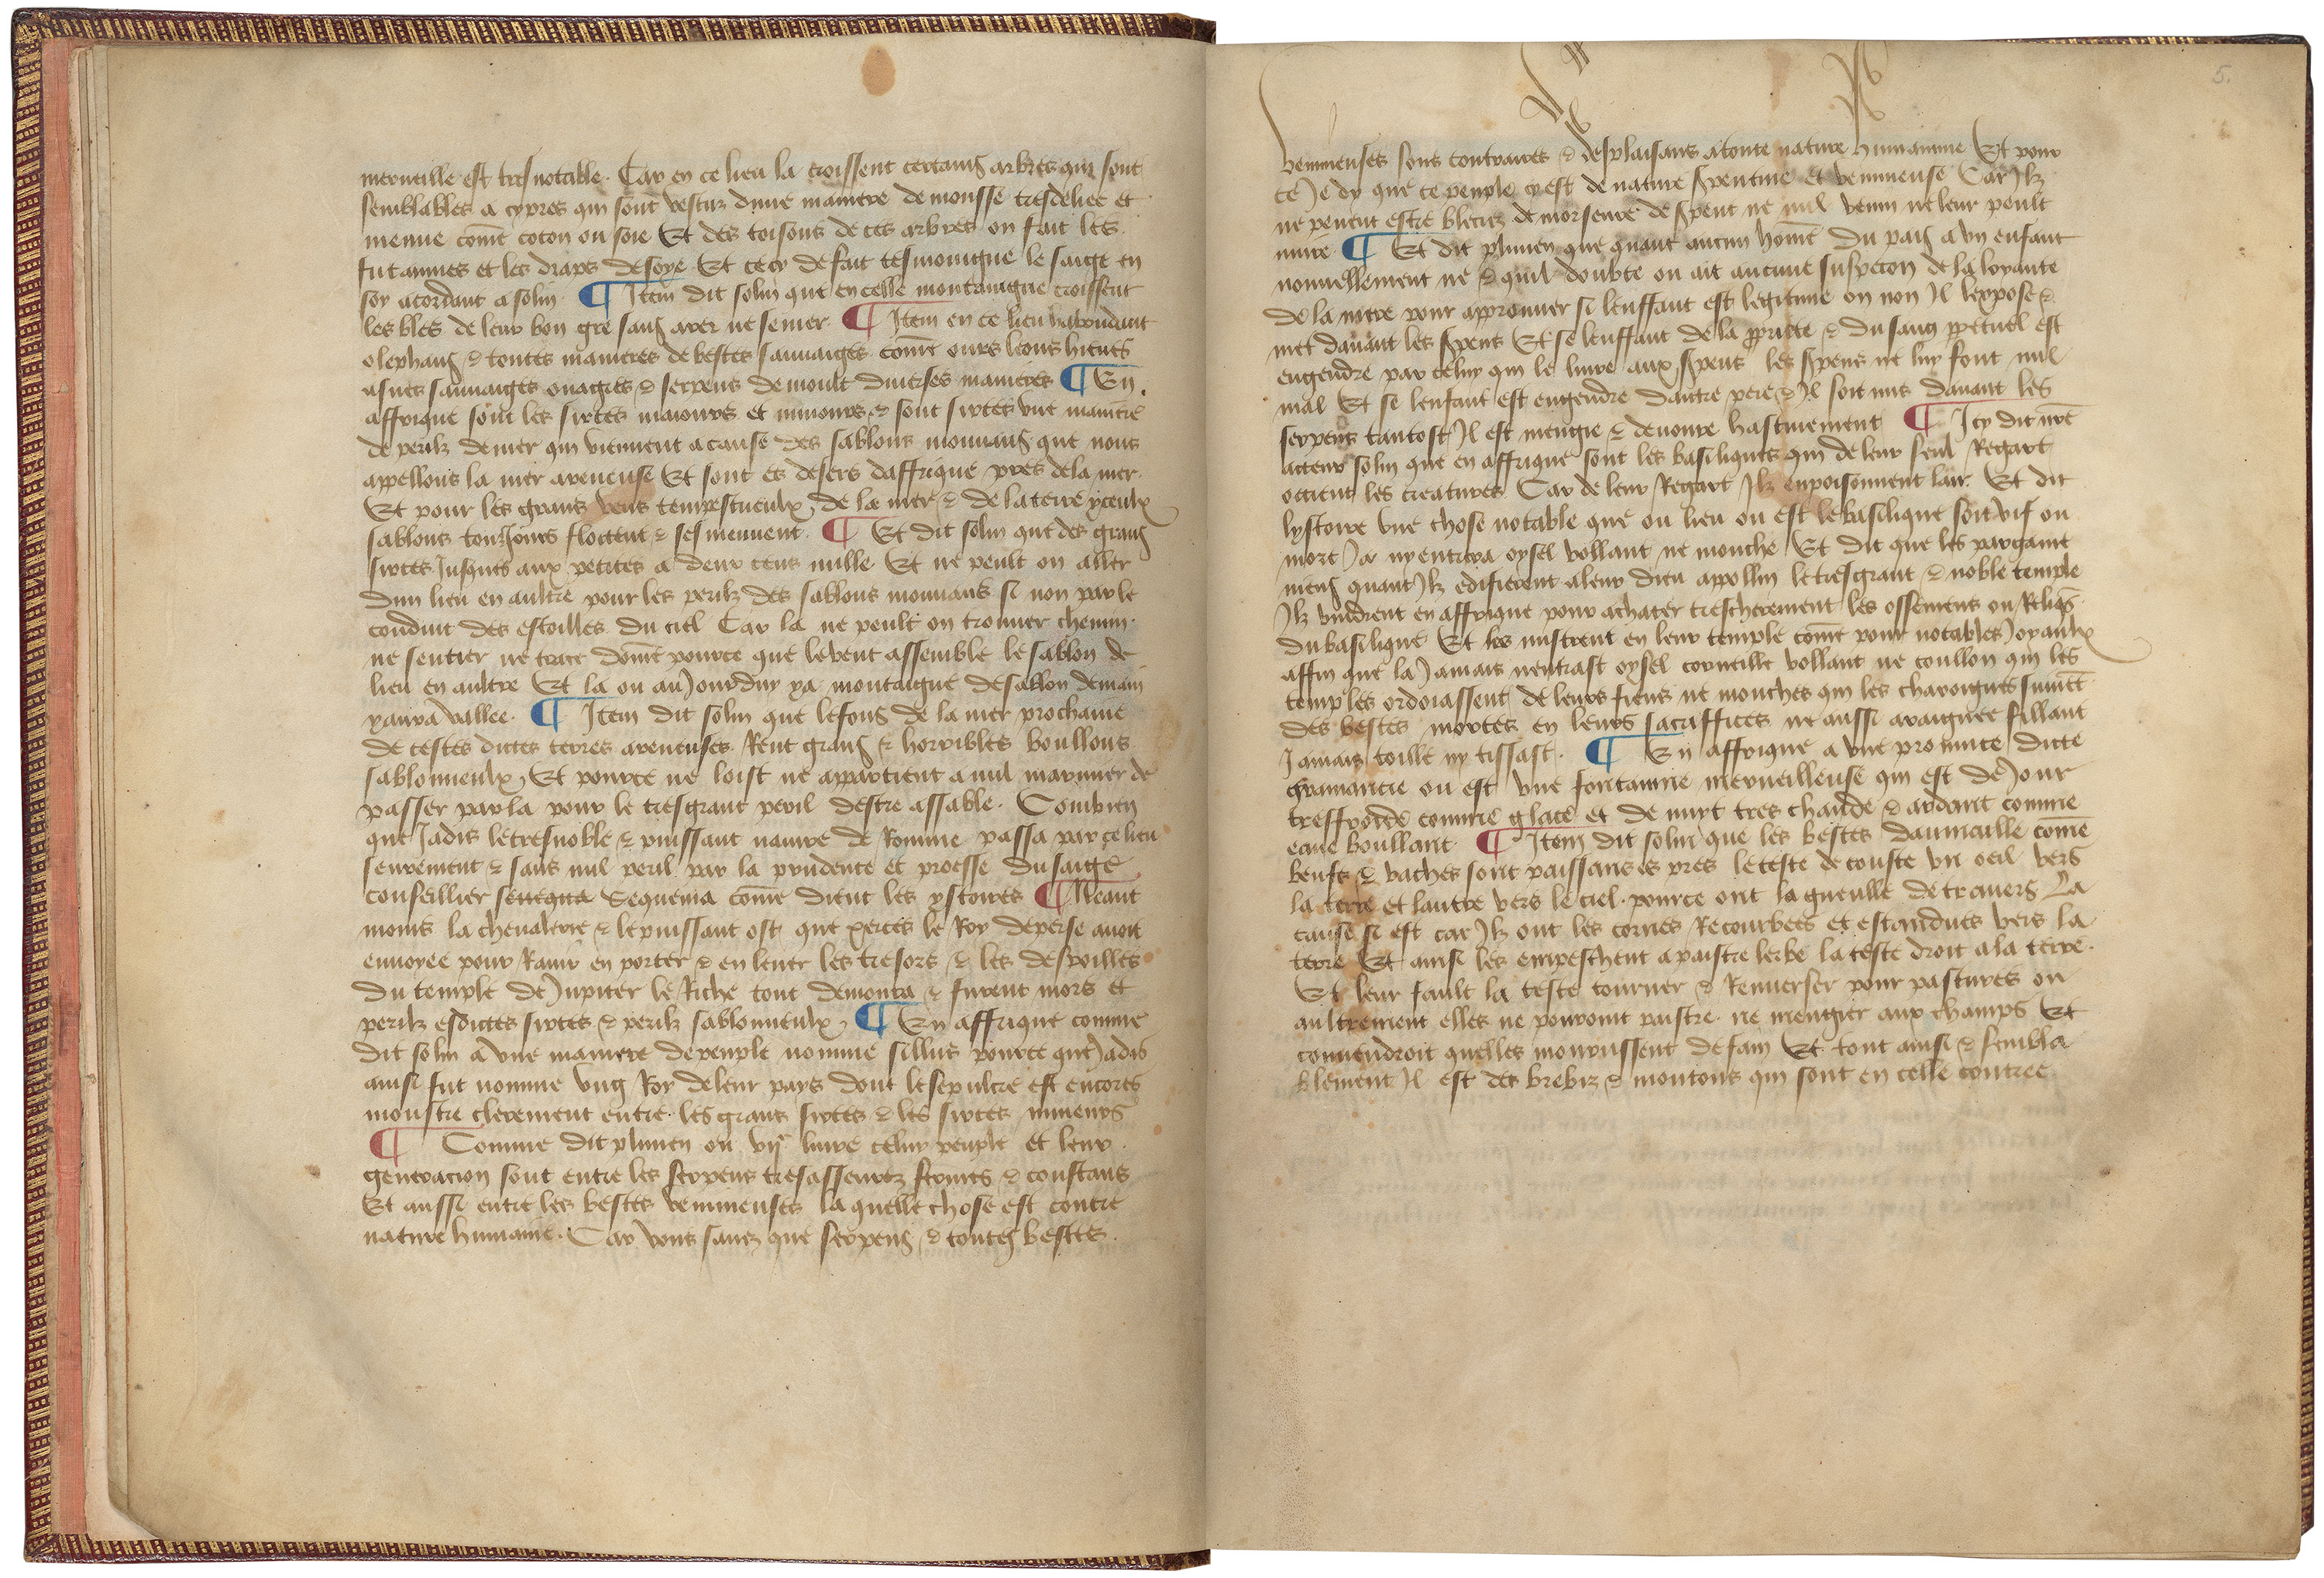 merveille est tresnotable. Car en ce lieu la croissent certains arbres qui sont
semblables a cypres qui sont vestuz dune maniere de mousse tresdeliee et
menue come coton ou soie Et des toisons de ces arbres on fait les
futannes et les draps de soye Et cecy de fait tesmoingne le saige en
soy acordant a solin. ¶ Item dit solin que en celle montaigne croissent
les bles de leur bon gre sans arer ne semer. ¶ Item en ce lieu habondant
olephans & toutes manieres de bestes sauvaiges come ours leons hienes
asnes sauvaiges onagres & serpens de moult diverses manieres ¶ En
affrique sont les sirtes maiours et minours & sont sirtes une maniere
de perilz de mer qui viennent a cause des sablons mouvans que nous
appellons la mer areneuse Et sont es desers daffrique pres de la mer.
Et pour les grans vens tempestueulx de la mer & de la terre yceulx
sablons tousjours flotent & sesmeuvent. ¶ Et dit solin que des grans
sirtes Jusques aux petites a deux cens mille Et ne peult on aller
dun lieu en aultre pour les perilz des sablons mouvans si non par le
conduit des estoilles du ciel Car la ne peult on trouver chemin
ne sentier ne trace dome pource que le vent assemble le sablon de
lieu en aultre Et la ou aujourduy ya montaigne de sablon demain
yaura vallee. ¶ Item dit solin que lefons de la mer prochaine
de cestes dictes terres areneuses Rent grans & horribles boullons
sablonneulx, Et pource ne loist ne appartient a nul marinier de
passer par la pour le tresgrant peril destre assable. Combien
que Jadis le tresnoble & puissant navire de Romme passa par ce lieu
seurement & sans nul peril par la prudence et proesse du saige
conseillier senequa Sequema come dient les ystoires ¶ Neant
moins la chevalerie & le puissant ost que xerces le Roy de perse avoit
envoyee pour Ravir en porter & en lever les tresors & les despoilles
du temple de Jupiter le Riche tout demoura & furent mors et
perilz esdictes sirtes & perilz sablonneulx, ¶ En affrique comme
dit solin a une maniere de peuple nomme sillus pource que Jadis
ainsi fut nomme ung Roy de leur pays dont le sepulcre est encores
monstre clerement entre les grans sirtes & les sirtes mineurs
¶ Comme dit plinien ou vije livre celuy peuple et leur
generacion sont entre les serpens tresasseurez fermes & constans
Et aussi entre les bestes venimeuses la quelle chose est contre
nature humaine. Car vous savez que serpens & toutes bestes
5.
venimeuses sont contraires & desplaisans a toute nature humaine Et pour
ce Je dy que ce peuple cy est de nature spentine et venimeuse Car Ilz
ne peuent estre bleciez de morseure de spent ne nul venin ne leur peult
nuire ¶ Et dit plinien que quant aucun home du pais a un enfant
nouvellement ne & quil doubte ou ait aucune suspecon de la loyaute
de la mere pour approuver si lenffant est legitime ou non Il lexpose &
met davant les spens Et se lenffant de la pprete & du sang ppetuel est
engendre par celuy qui le livre aux spens les spens ne luy font nul
mal Et se lenfant est engendre dautre pere & Il soit mis davant les
serpens tantost Il est mengie & devoure hastivement ¶ Icy dit nre
acteur solin que en affrique sont les basiliques qui de leur seul Regart
occient les creatures Car de leur Regart Ilz enpoisonnent lair. Et dit
lystoire une chose notable que ou lieu ou est le basilique soit vif ou
mort Ja ny entrera oysel vollant ne mouche Et dit que les pargame
niens quant Ilz edifierent a leur dieu appollin le tresgrant & noble temple
Ilz vindrent en affrique pour achater treschierement les ossemens ou Reliqs
du basilique Et les mistrent en leur temple come pour notables Joyaulx
affin que la Jamais nentrast oysel corneille vollant ne coullon qui les
temples ordoiassent de leurs fiens ne mouches qui les charoignes suivet
des bestes mortes en leurs sacriffices ne aussi araignee fillant
Jamais toille ny tissast. ¶ En affrique a une province dicte
gramancie ou est une fontainne merveilleuse qui est de Jour
treffroide comme glace et de nuyt tres chaude & ardant comme
eaue boullant ¶ Item dit solin que les bestes daumeaille come
beufs & vaches sont paissans es pres le teste de couste un oeil vers
la terre et lautre vers le ciel. pource ont la gueulle de travers La
cause si est car Ilz ont les cornes Recourbees et estandues vers la
terre Et ainsi les empeschent a paistre lerbe la teste droit a la terre.
Et leur fault la teste tourner & Renverser pour pastures ou
aultrement elles ne pourroint paistre ne mengier aux champs Et
conviendroit quelles mourussent de fain Et tout ainsi & sembla
blement Il est des brebiz & moutons qui sont en celle contree